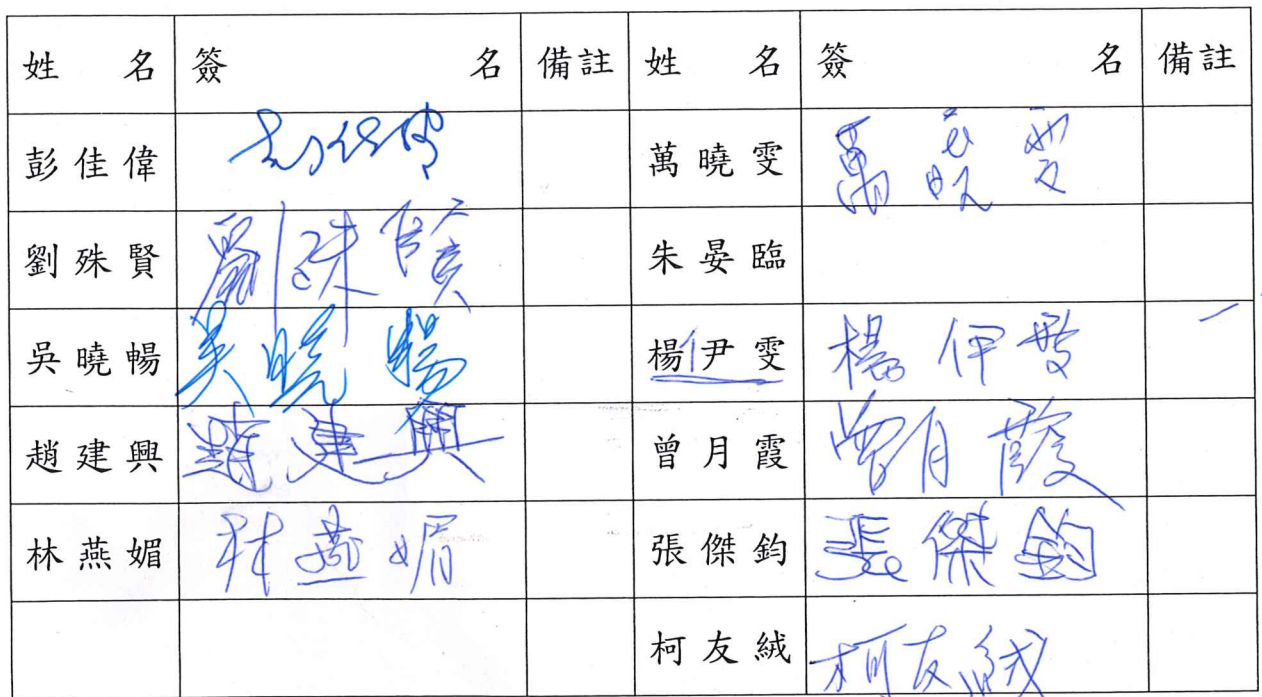 姓 名 簽 名 備註 姓 名 簽 名 備註
彭佳偉 彭佳偉 萬曉雯 萬曉雯
劉殊賢 劉殊賢 朱晏臨
吳曉暢 吳曉暢 楊伊雯 楊伊雯
趙建興 趙建興 曾月霞 曾月霞
林燕媚 林燕媚 張傑鈞 張傑鈞
柯友絨 柯友絨